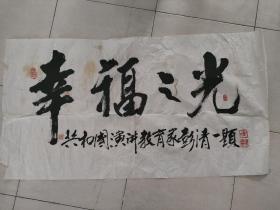 幸福之光
共和國演讲教育家彭清一題